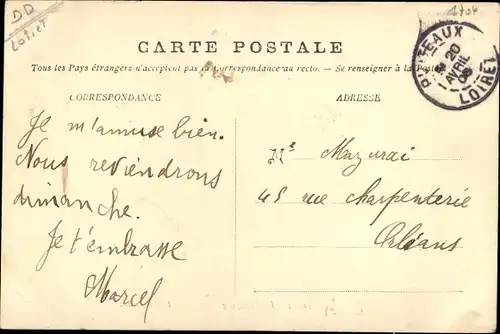 DD
Loiret
1704
CARTE POSTALE
Tous les Pays étrangers n'acceptent pas la Correspondance au recto. — Se renseigner à la Poste
CORRESPONDANCE
ADRESSE
PUISEAUX
20
AVRIL
LOIRET
Je m'amuse bien.
Nous reviendrons
dimanche.
Je t'embrasse
Marcel
Mr Mazurai
45 rue Charpenterie
Orléans